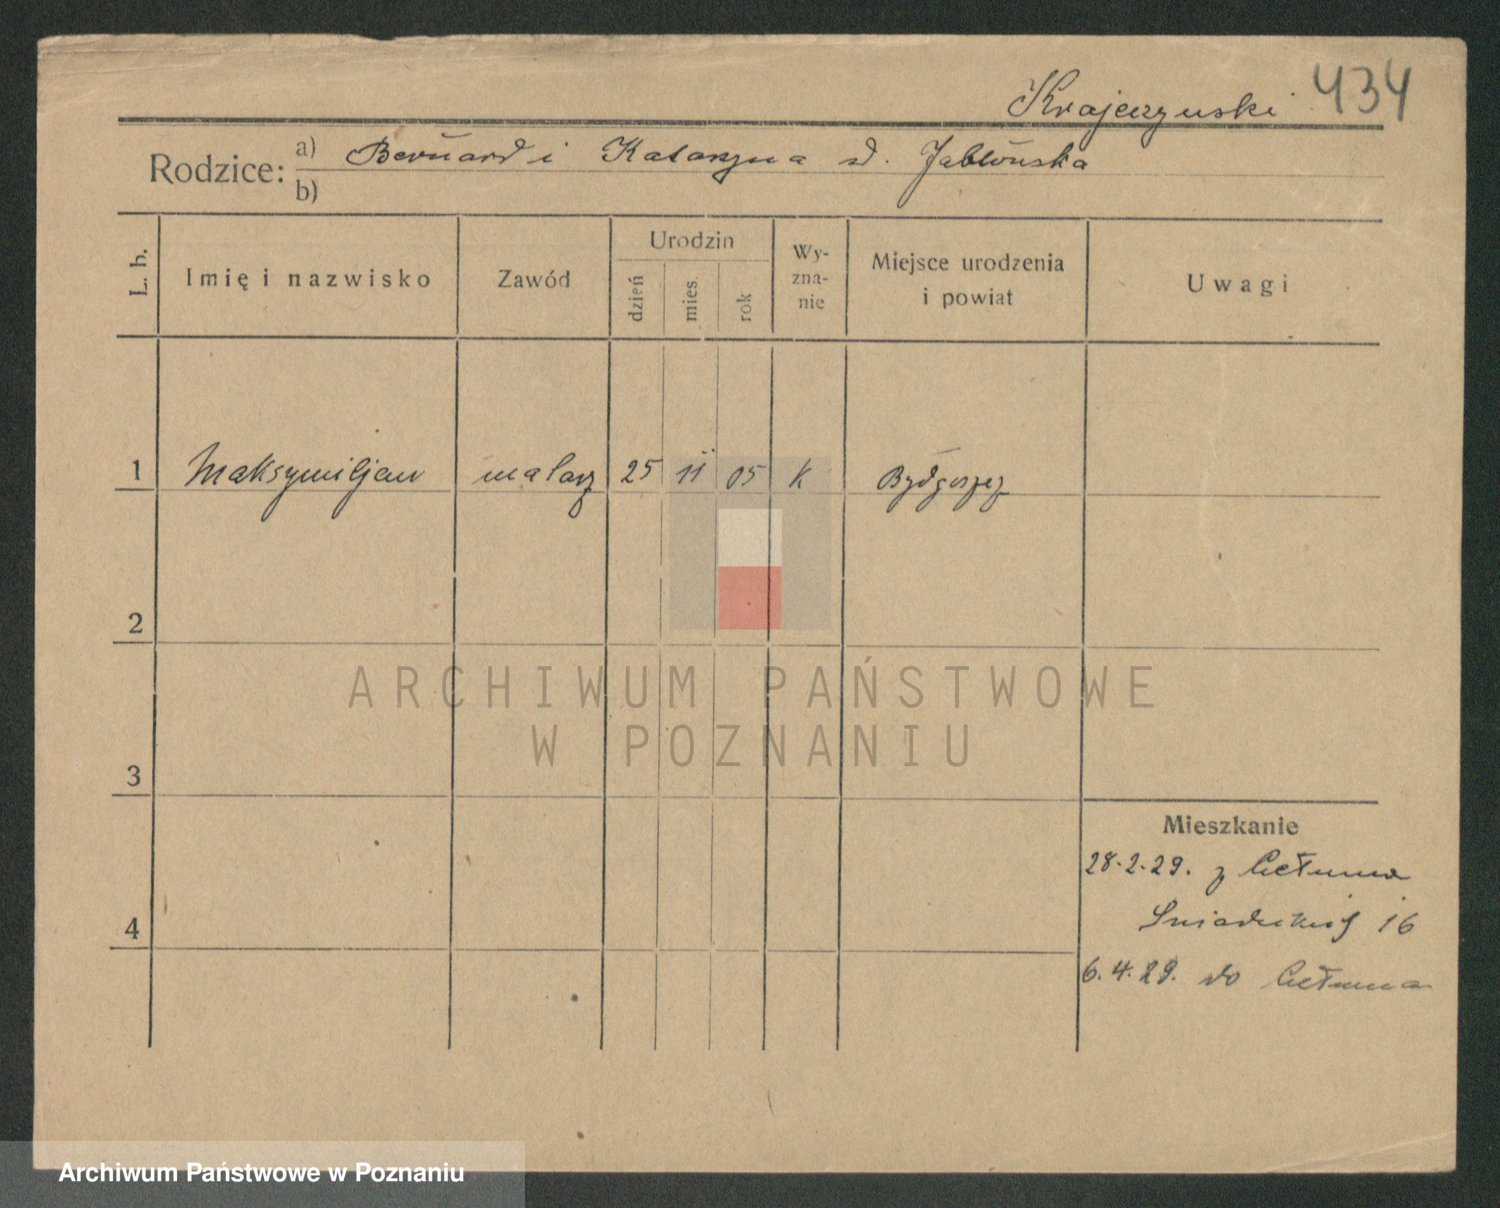 Krajczyński 434
Rodzice: a) Bernard i Katarzyna d. Jabłońska
b)
L. b.
Imię i nazwisko
Zawód
Urodzin
dzień
mies.
rok
Wy-
zna-
nie
Miejsce urodzenia
i powiat
Uwagi
1 Maksymiljan malarz 25 11 05 k Bydgoszcz
2
3
4
Mieszkanie
28.2.29. z Chełmna
Śniadeckich 16
6.4.29. do Chełmna
ARCHIWUM PAŃSTWOWE
W POZNANIU
Archiwum Państwowe w Poznaniu